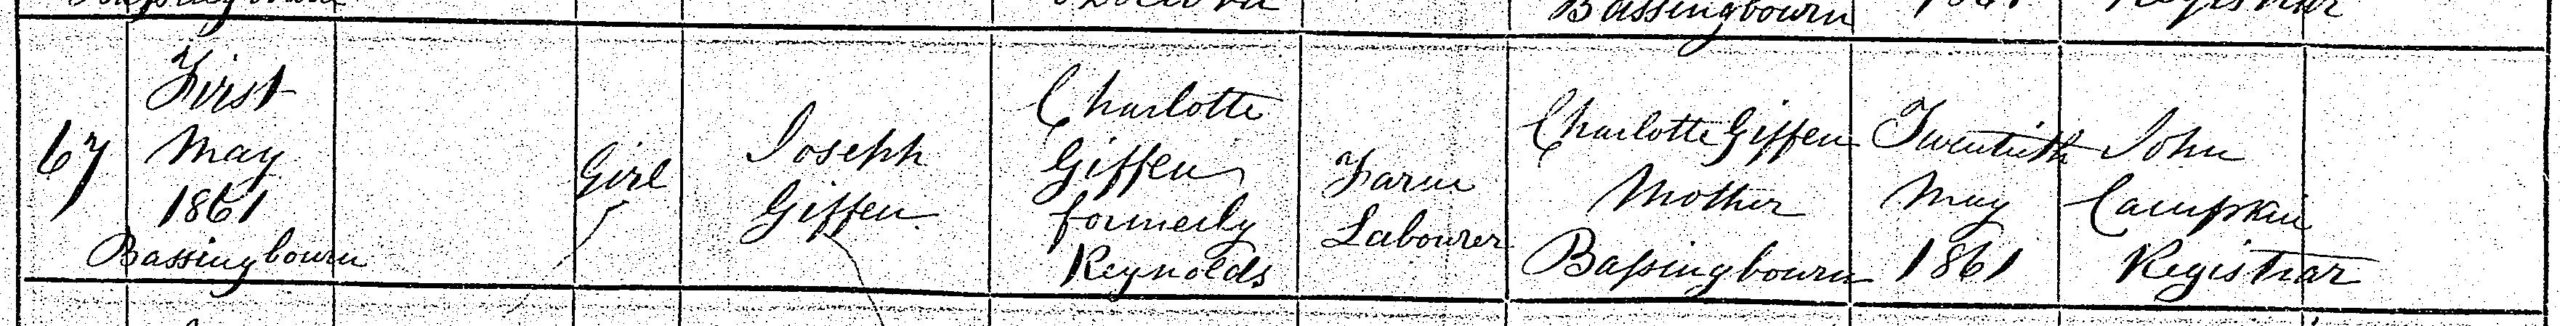 Bassingbourn
Registrar
67
First
May
1861
Bassingbourn
Girl
Joseph
Giffen
Charlotte
Giffen
formerly
Reynolds
Farm
Labourer
Charlotte Giffen
Mother
Bassingbourn
Twentieth
May
1861
John
Campkin
Registrar